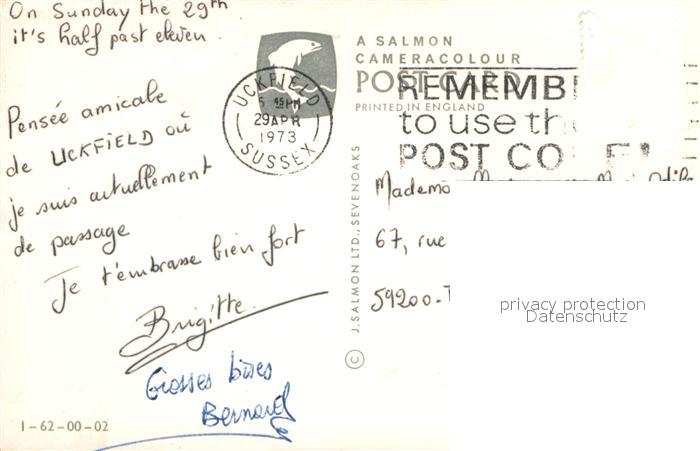 On Sunday the 29th
it's half past eleven.
Pensée amicale
de UCKFIELD où
je suis actuellement
de passage
Je t'embrasse bien fort
Brigitte.
Grosses bises
Bernard
1-62-00-02
A SALMON
CAMERACOLOUR
POST CARD
PRINTED IN ENGLAND
UCKFIELD
45 PM
29 APR
1973
SUSSEX
REMEMB
to use th
POST CO
J. SALMON LTD., SEVENOAKS ©
Mademo
67, rue
59200-T
privacy protection
Datenschutz